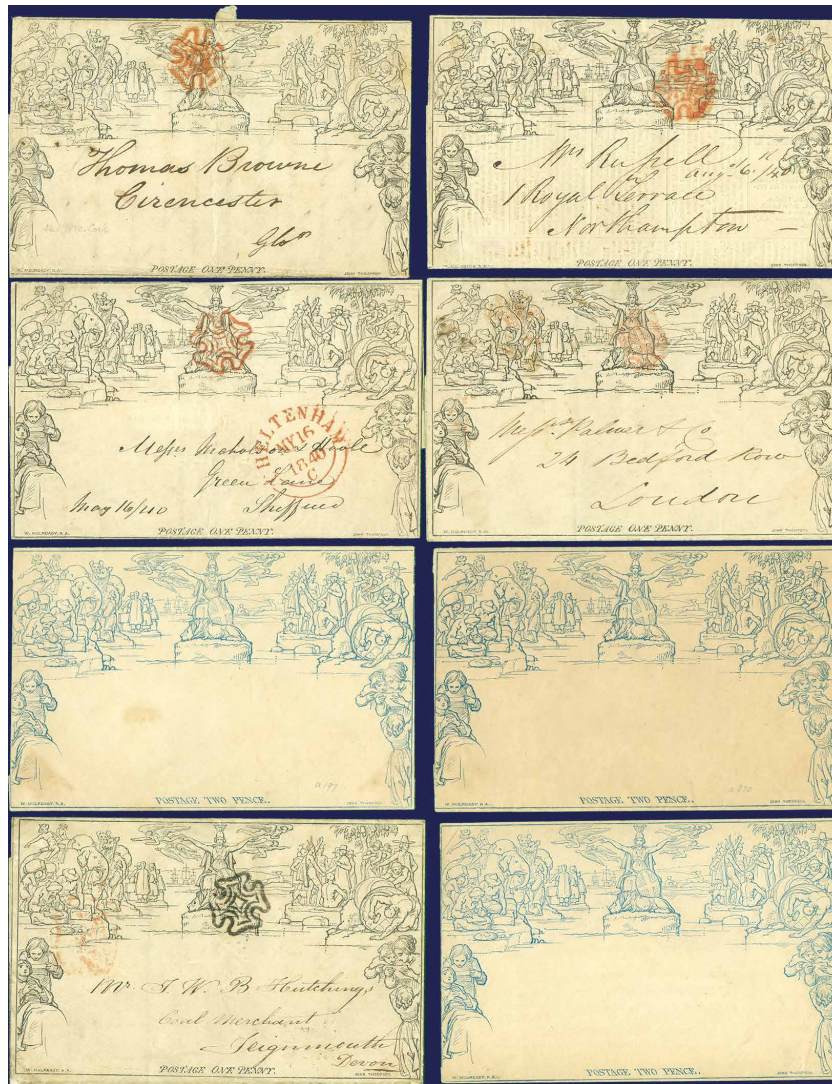 Thomas Browne
Cirencester
Glos
W. MULREADY, R.A.
POSTAGE ONE PENNY.
JOHN THOMPSON
Mrs Russell
Aug. 6. /40
1 Royal Terrace
Northampton —
POSTAGE ONE PENNY.
JOHN THOMPSON
CHELTENHAM
MY 16
1840
C
Messrs Nicholson & Hoole
Green Lane
Sheffield
May 16/40
W. MULREADY, R.A.
POSTAGE ONE PENNY.
JOHN THOMPSON
Messrs Palmer & Co
24 Bedford Row
London
W. MULREADY, R.A.
POSTAGE ONE PENNY.
JOHN THOMPSON
a 197
W. MULREADY, R.A.
POSTAGE TWO PENCE.
JOHN THOMPSON
W. MULREADY, R.A.
POSTAGE TWO PENCE.
JOHN THOMPSON
Mr. J. W. B Hutchings
Coal Merchant
Teignmouth
Devon
W. MULREADY, R.A.
POSTAGE ONE PENNY.
JOHN THOMPSON
W. MULREADY, R.A.
POSTAGE TWO PENCE.
JOHN THOMPSON